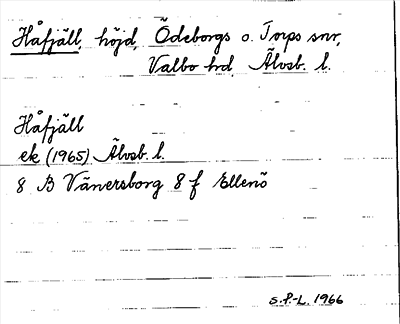 Håfjäll, höjd, Ödeborgs o. Torps snr,
Valbo hd, Älvsb. l.
Håfjäll
ek (1965) Älvsb. l.
8 B Vänersborg 8 f Ellenö
S.P.-L. 1966